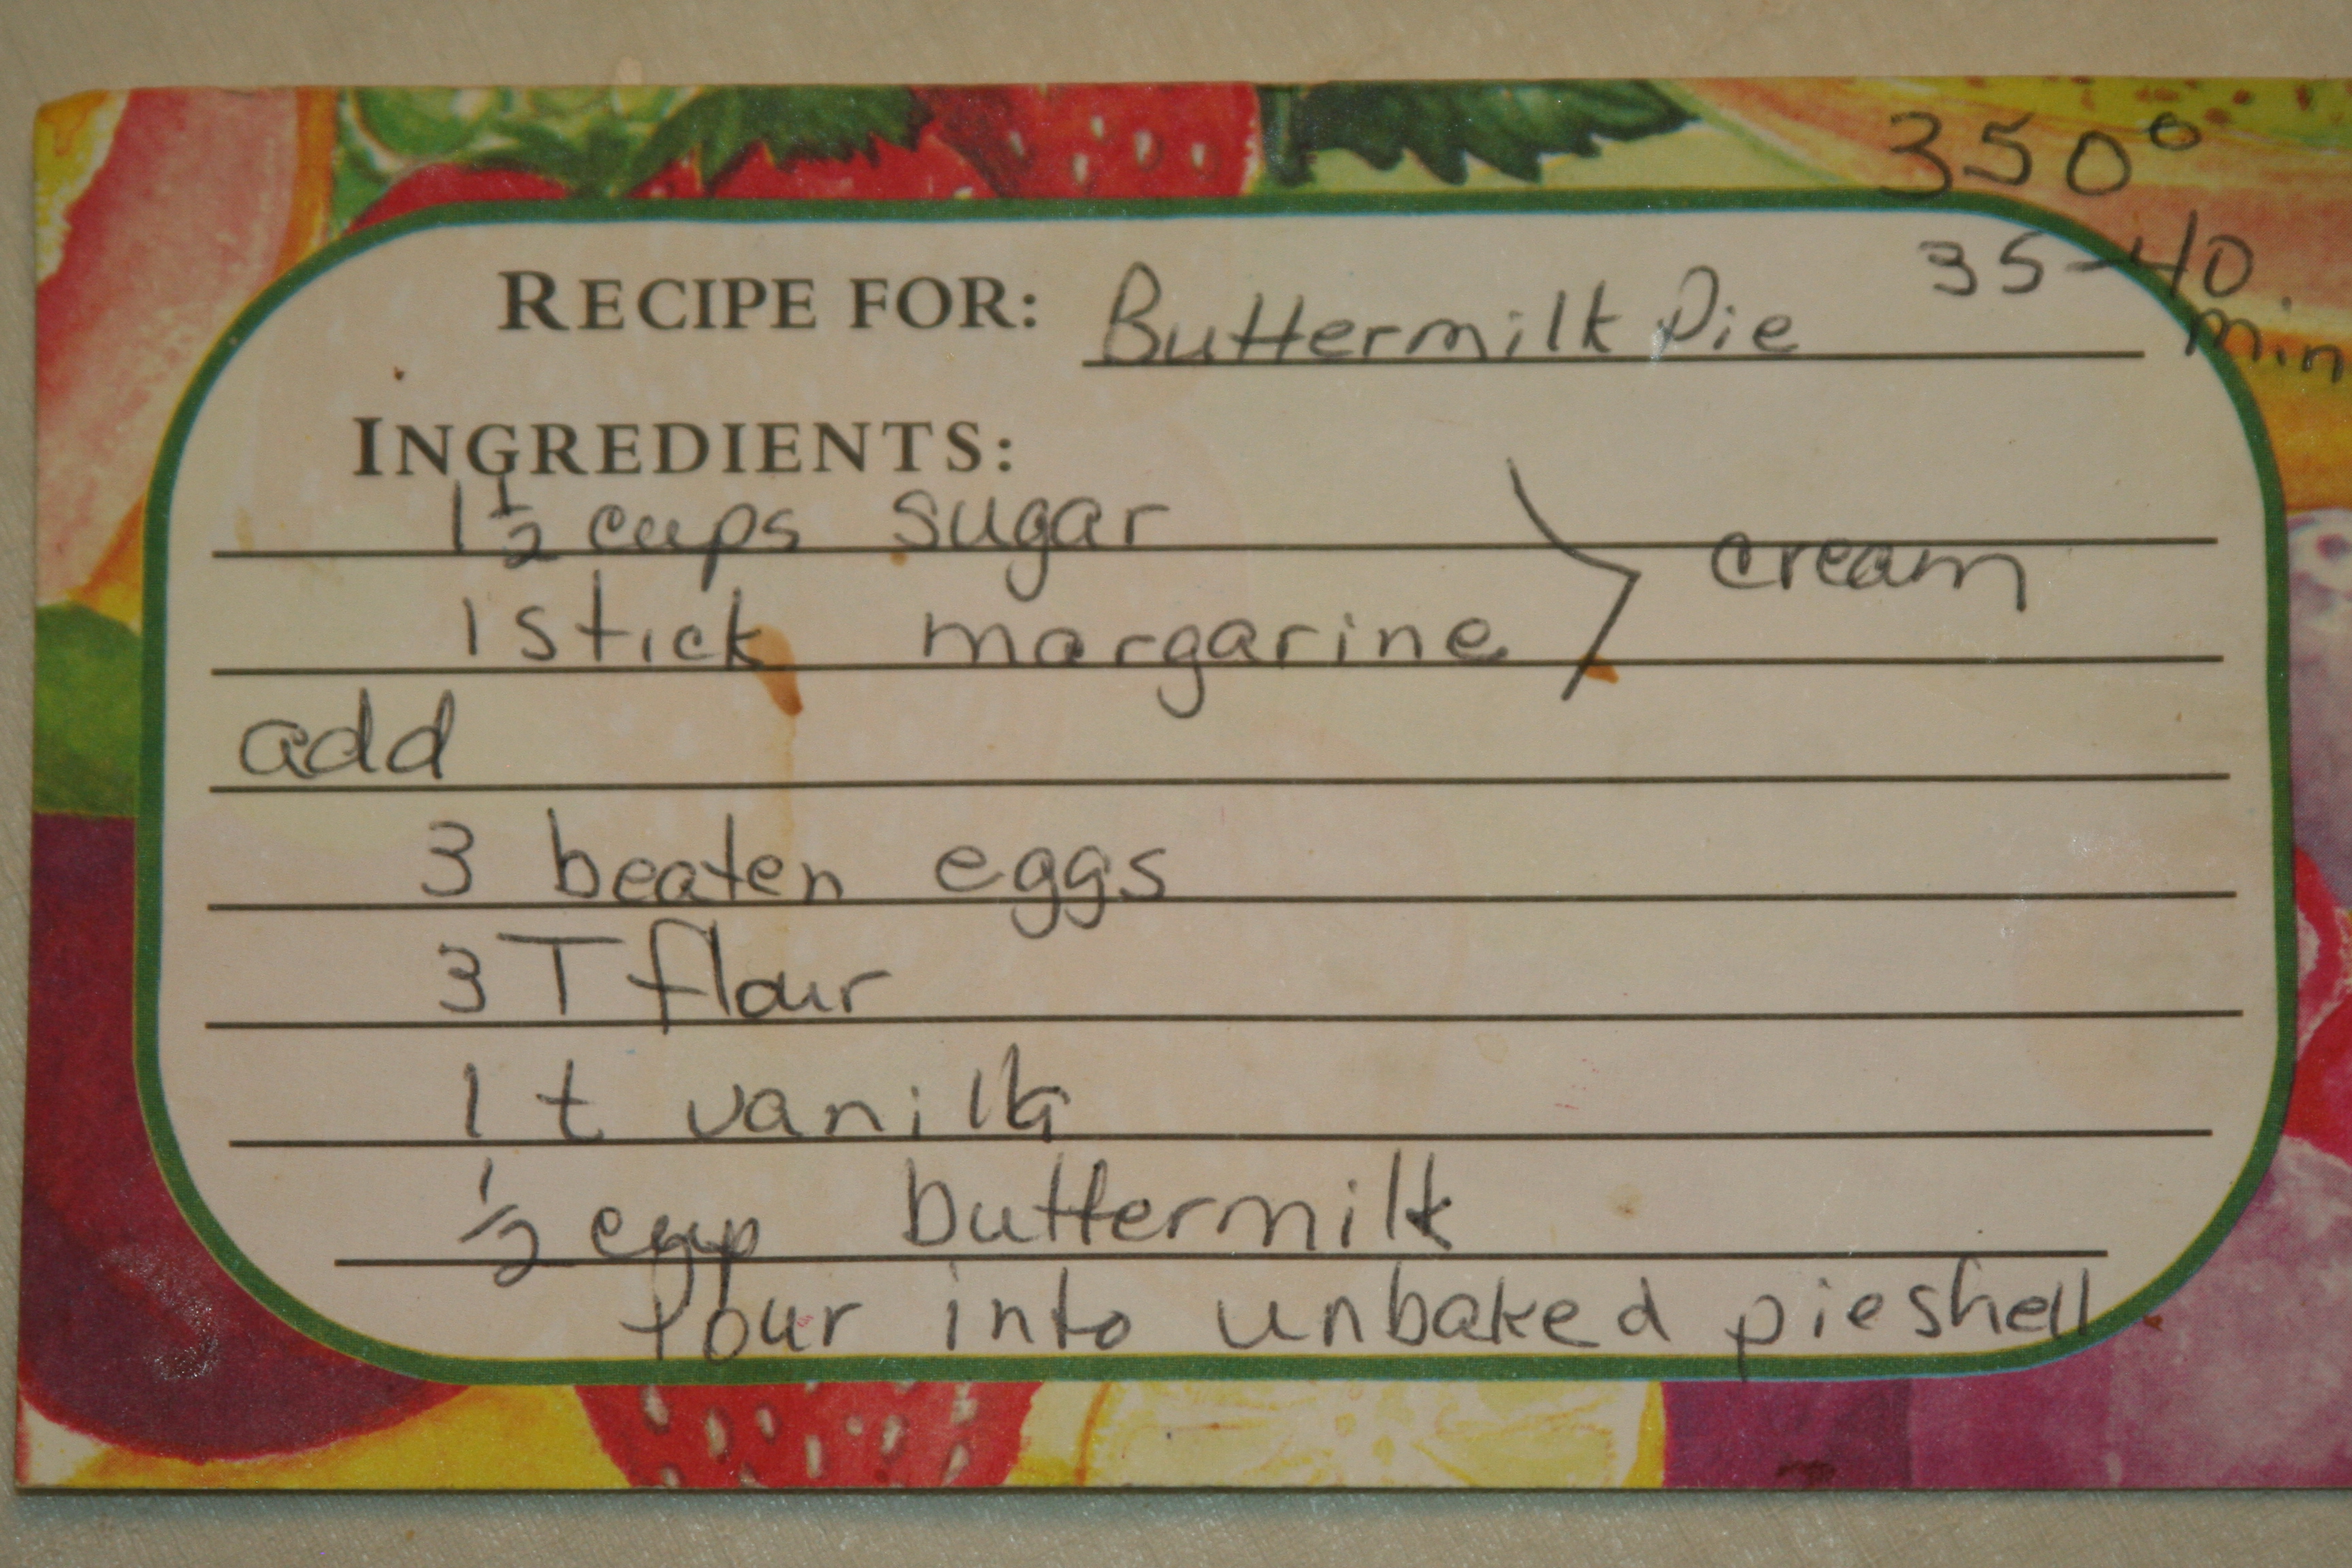 350°
35-40 min.
RECIPE FOR: Buttermilk Pie
INGREDIENTS:
1 1/2 cups sugar
cream
1 stick margarine
add
3 beaten eggs
3 T flour
1 t vanilla
1/2 cup buttermilk
Pour into unbaked pie shell